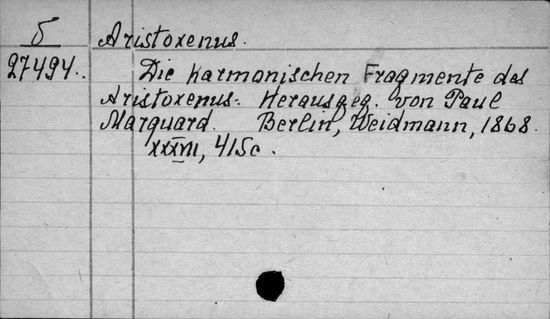 б
Aristoxenus.
27494.
Die harmonischen Fragmente des
Aristoxenus. Herausgeg. von Paul
Marquard. Berlin, Weidmann, 1868.
415c.